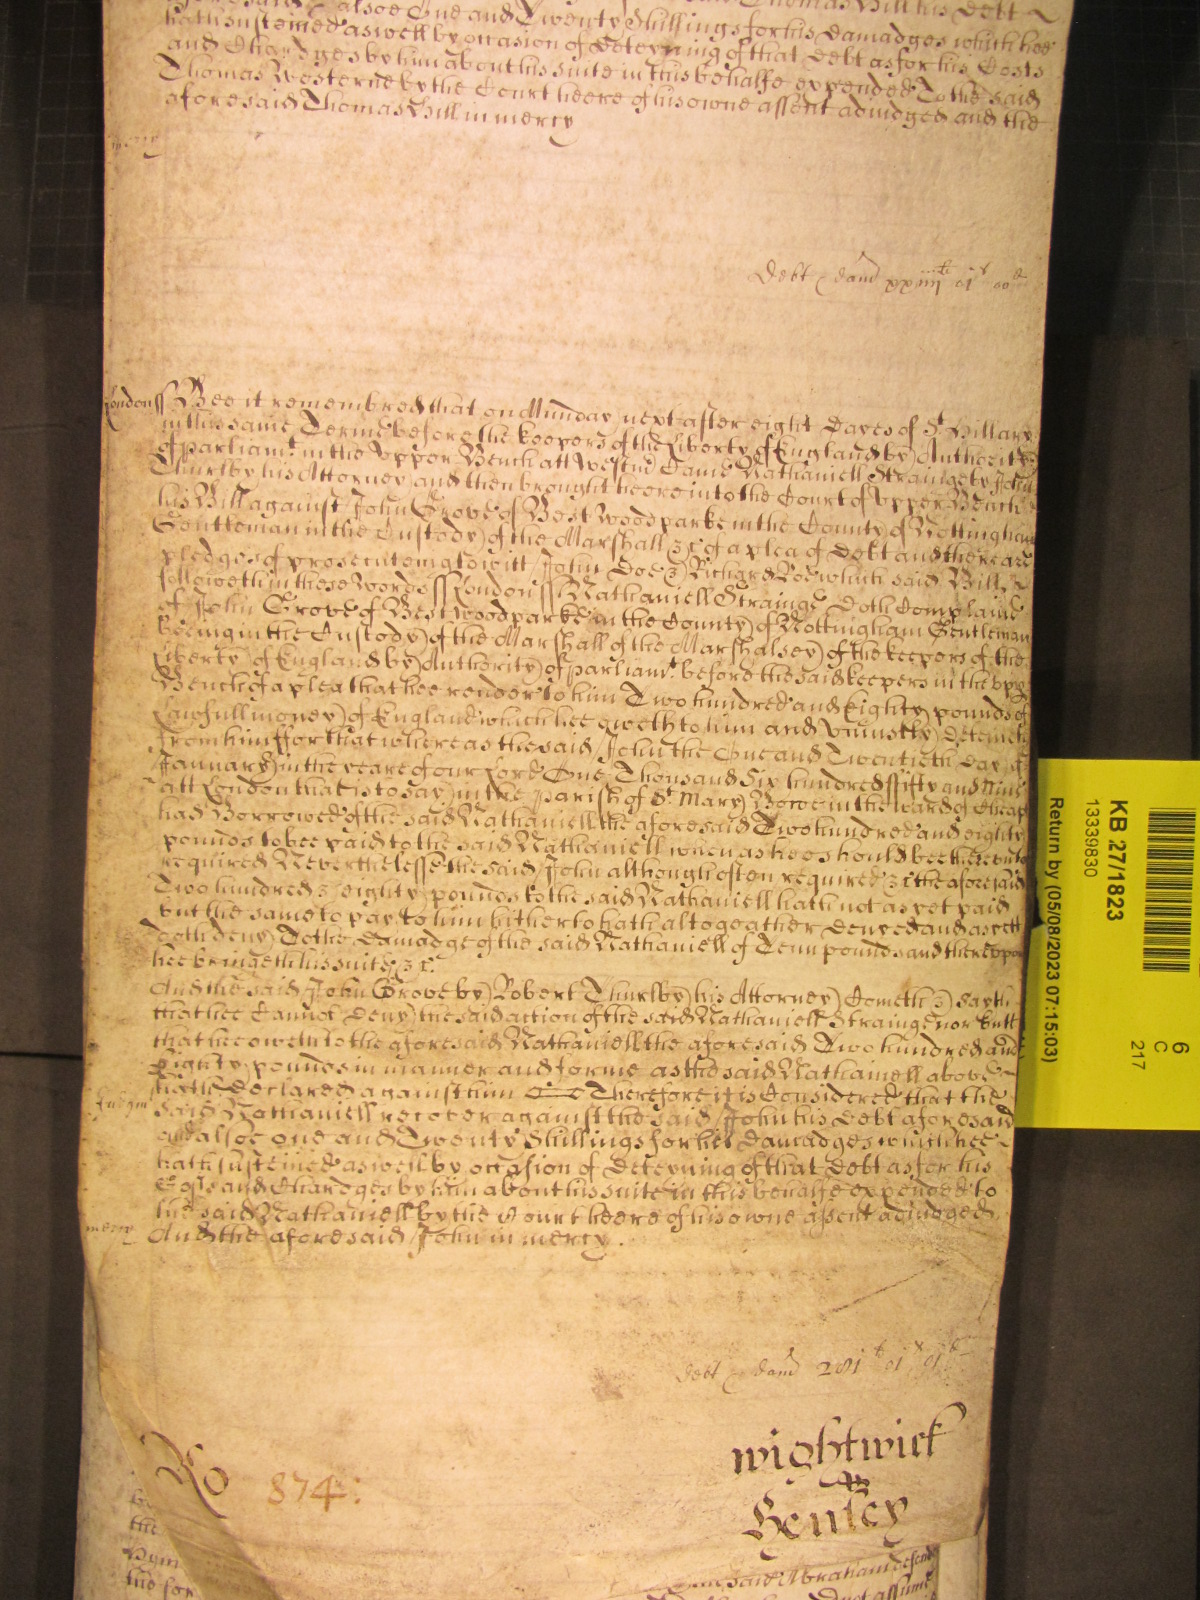 alsoe One and Twenty Shillings for his Damadges which hee
hath susteined aswell by occasion of Deteyning of that Debt as for his Costs
and Chardges by him about his suite in this behalfe expended To the said
Thomas Westerne by the Court heere of his owne assent adiudged and the
aforesaid Thomas Hill in mercy
mercy
Debt & dam xxiiii li 01 s 00 d
London ss Bee it remembred that on Munday next after eight Dayes of St Hillary
in this same Terme before the keepers of the Liberty of England by Authority
of Parliamt. in the Upper Bench att Westm Came Nathaniell Strainge by John
Thurlby his Attorney and then brought heere into the Court of Upper Bench
his Bill against John Grove of Best wood parke in the County of Nottingham
Gentleman in the Custody of the Marshall &c of a plea of Debt and there are
pledges of prosecuteing to witt John Doe & Richard Roe which said Bill
followeth in these words ss London ss Nathaniell Strainge Doth Complaine
of John Grove of Best wood parke in the County of Nottingham Gentleman
beeing in the Custody of the Marshall of the Marshalsey of the keepers of the
Liberty of England by Authority of Parliamt. before the said keepers in the Uppr
Bench of a plea that hee render to him Two hundred and Eighty pounds of
Lawfull money of England which hee oweth to him and Uniustly Deteineth
from him ffor that whereas the said John the One and Twentieth Day of
January in the yeare of our Lord One Thousand Six hundred ffifty and Nine
att London that is to say in the Parish of St Mary Bowe in the ward of Cheap
had Borrowed of the said Nathaniell the aforesaid Two hundred and eighty
pounds to bee paid to the said Nathaniell when as hee should bee thereunto
required Neverthelesse the said John although often required &c the aforesaid
Two hundred & eighty pounds to the said Nathaniell hath not as yet paid
but the same to pay to him hitherto hath altogeather Denyed and as yett
doth deny To the Damadge of the said Nathaniell of Tenn pounds and thereuppon
hee bringeth his suite &c.
And the said John Grove by Robert Thurlby his Attorney Cometh & sayth
that hee Cannot Deny the said action of the said Nathaniell Strainge nor butt
that hee oweth to the aforesaid Nathaniell the aforesaid Two hundred and
Eighty pounds in manner and forme as the said Nathaniell above
hath Declared against him Therefore it is Considered that the
Judgmt
said Nathaniell recover against the said John his Debt aforesaid
and alsoe one and Twenty Shillings for his Damadges which hee
hath susteined aswell by occasion of Deteyning of that Debt as for his
Costs and Chardges by him about his suite in this behalfe expended to
the said Nathaniell by the Court heere of his owne assent adiudged
mercy And the aforesaid John in mercy.
debt & dam 281 li 01 s 01 d
Ro 874:
Wightwick
&
Henley
the
the for
said Abraham
not assume
KB 27/1823
13339830
Return by (05/08/2023 07:15:03)
6
C
217